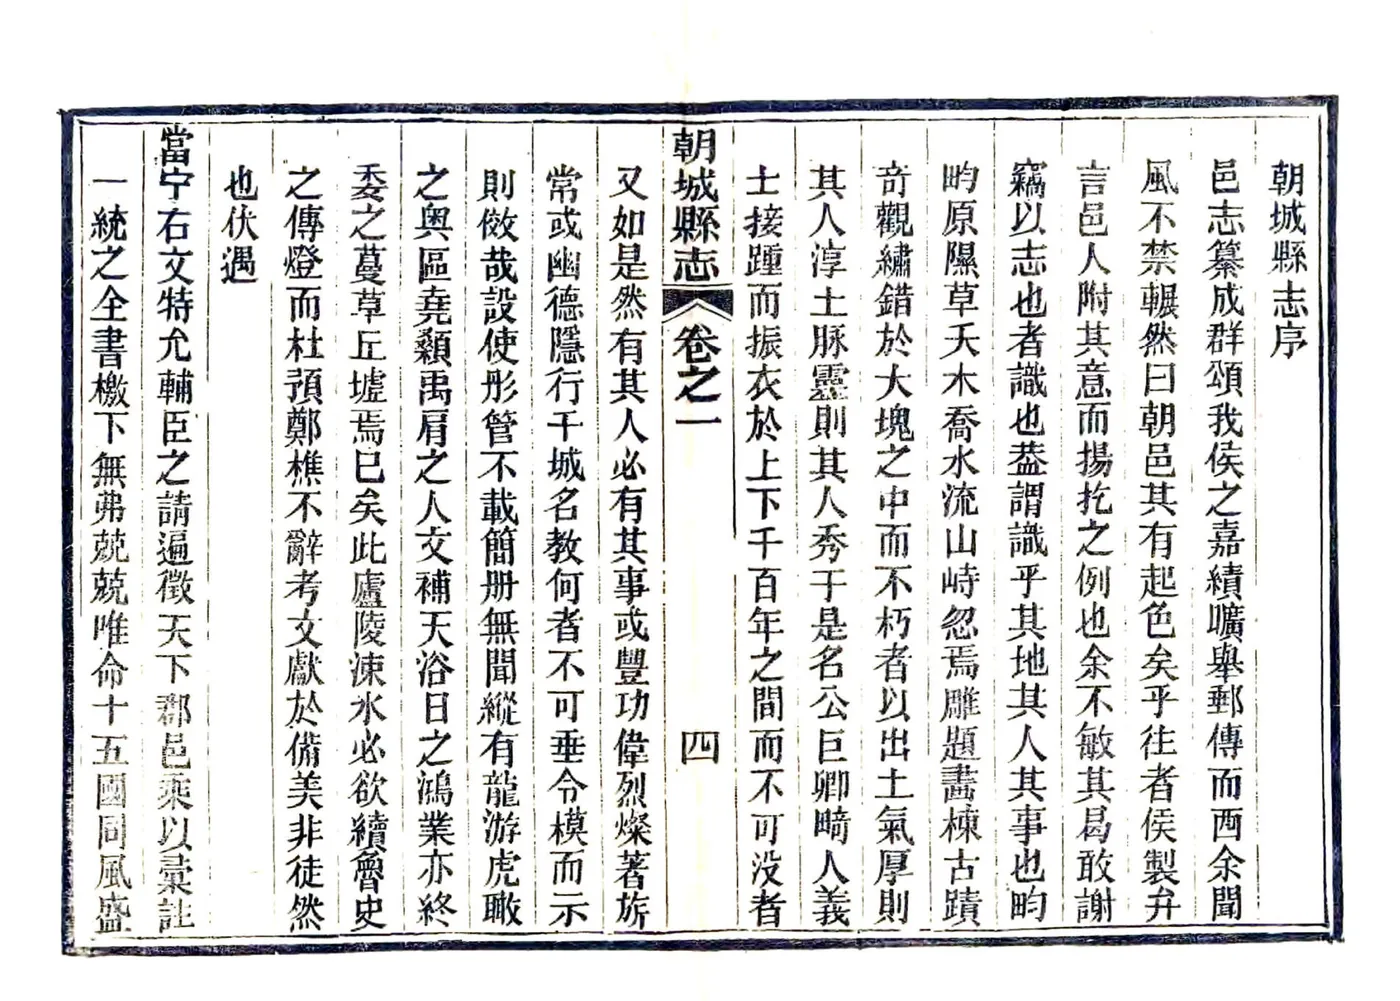 朝城縣志序
邑志纂成群頌我侯之嘉績曠舉郵傳而西余聞
風不禁輾然曰朝邑其有起色矣乎往者侯製弁
言邑人附其意而揚扢之例也余不敏其曷敢謝
竊以志也者識也葢謂識乎其地其人其事也畇
畇原隰草夭木喬水流山峙忽焉雕題畵棟古蹟
奇觀繡錯於大塊之中而不朽者以出土氣厚則
其人淳土脉靈則其人秀于是名公巨卿畸人義
士接踵而振衣於上下千百年之間而不可没者
朝城縣志 卷之一 四
又如是然有其人必有其事或豐功偉烈燦著旂
常或幽德隱行干城名教何者不可垂令模而示
則傚哉設使彤管不載簡册無聞縱有龍游虎瞰
之奥區堯顙禹肩之人文補天浴日之鴻業亦終
委之蔓草丘墟焉已矣此廬陵涑水必欲續魯史
之傳燈而杜預鄭樵不辭考文獻於備美非徒然
也伏遇
當宁右文特允輔臣之請遍徵天下郡邑乘以彚註
一統之全書檄下無弗兢兢唯命十五國同風盛